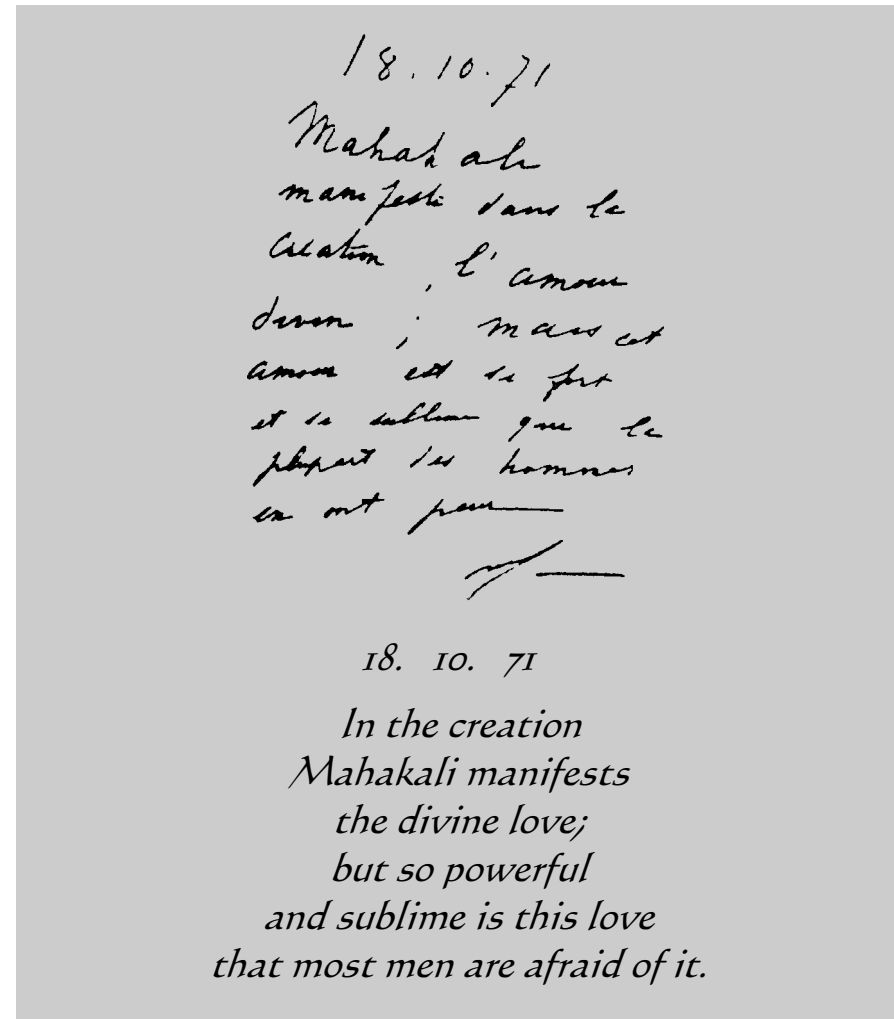 18.10.71
Mahakali
manifeste dans la
création, l'amour
divin; mais cet
amour est si fort
et si sublime que la
plupart des hommes
en ont peur
18. 10. 71
In the creation
Mahakali manifests
the divine love;
but so powerful
and sublime is this love
that most men are afraid of it.